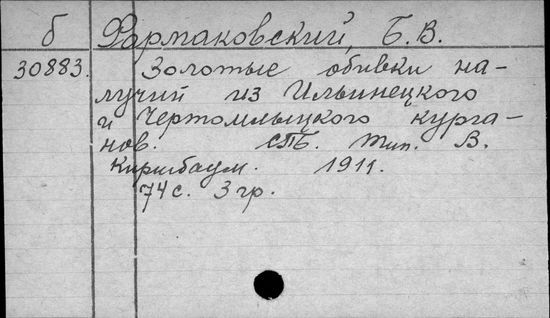 б Фармаковский, Б. В.
30883. Золотые обивки на-
лучий из Ильинецкого
и Чертомлыцкого курга-
нов. СПБ. Тип. В.
Киршбаум. 1911.
74 с. 3 гр.